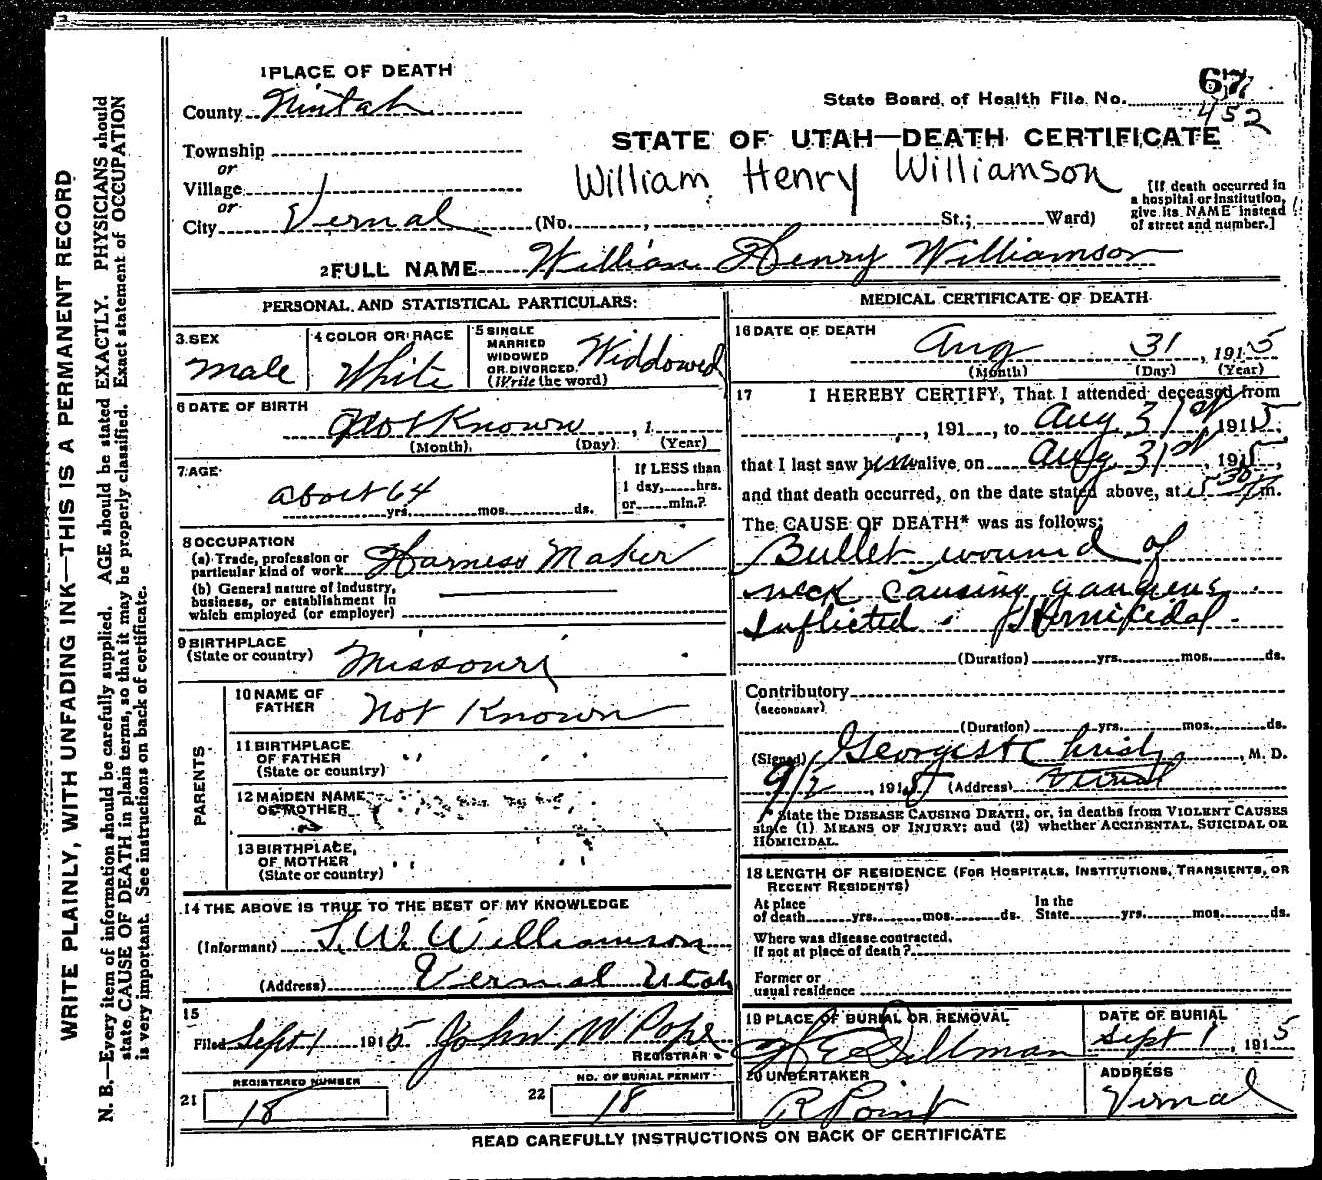 1 PLACE OF DEATH
County Uintah
Township
or
Village
or
City Vernal (No. , St.; Ward)
67
State Board of Health File No.
452
STATE OF UTAH—DEATH CERTIFICATE
William Henry Williamson
[If death occurred in
a hospital or institution,
give its NAME instead
of street and number.]
2 FULL NAME William Henry Williamson
PERSONAL AND STATISTICAL PARTICULARS:
3 SEX
Male
4 COLOR OR RACE
White
5 SINGLE
MARRIED
WIDOWED
OR DIVORCED.
(Write the word)
Widdowed
6 DATE OF BIRTH
Not Known , 1
(Month) (Day) (Year)
7 AGE
about 64
yrs. mos. ds.
If LESS than
1 day, hrs.
or min.?
8 OCCUPATION
(a) Trade, profession or
particular kind of work Harness Maker
(b) General nature of industry,
business, or establishment in
which employed (or employer)
9 BIRTHPLACE
(State or country) Missouri
PARENTS
10 NAME OF
FATHER Not Known
11 BIRTHPLACE
OF FATHER " "
(State or country)
12 MAIDEN NAME
OF MOTHER
13 BIRTHPLACE,
OF MOTHER
(State or country) " "
14 THE ABOVE IS TRUE TO THE BEST OF MY KNOWLEDGE
(Informant) Williamson
(Address) Vernal Utah
15
Filed Sept 1 1915 John W Pope
REGISTRAR
21 REGISTERED NUMBER
18
22 NO. OF BURIAL PERMIT
18
MEDICAL CERTIFICATE OF DEATH
16 DATE OF DEATH
Aug 31, 1915
(Month) (Day) (Year)
17 I HEREBY CERTIFY, That I attended deceased from
, 191 , to Aug 31st 1915,
that I last saw him alive on Aug 31st, 1915,
and that death occurred, on the date stated above, at 5 30 m.
The CAUSE OF DEATH* was as follows:
Bullet wound of
neck causing
Inflicted. Homicidal.
(Duration) yrs. mos. ds.
Contributory
(SECONDARY)
(Duration) yrs. mos. ds.
(Signed) , M. D.
9/2, 1915 (Address) Vernal
* State the DISEASE CAUSING DEATH, or, in deaths from VIOLENT CAUSES
state (1) MEANS OF INJURY; and (2) whether ACCIDENTAL, SUICIDAL OR
HOMICIDAL.
18 LENGTH OF RESIDENCE (FOR HOSPITALS, INSTITUTIONS, TRANSIENTS, OR
RECENT RESIDENTS)
At place
of death yrs. mos. ds.
In the
State yrs. mos. ds.
Where was disease contracted,
if not at place of death?
Former or
usual residence
19 PLACE OF BURIAL OR REMOVAL
DATE OF BURIAL
Sept 1, 1915
20 UNDERTAKER
R Point
ADDRESS
Vernal
READ CAREFULLY INSTRUCTIONS ON BACK OF CERTIFICATE
WRITE PLAINLY, WITH UNFADING INK—THIS IS A PERMANENT RECORD
N. B.—Every item of information should be carefully supplied. AGE should be stated EXACTLY. PHYSICIANS should
state CAUSE OF DEATH in plain terms, so that it may be properly classified. Exact statement of OCCUPATION
is very important. See instructions on back of certificate.